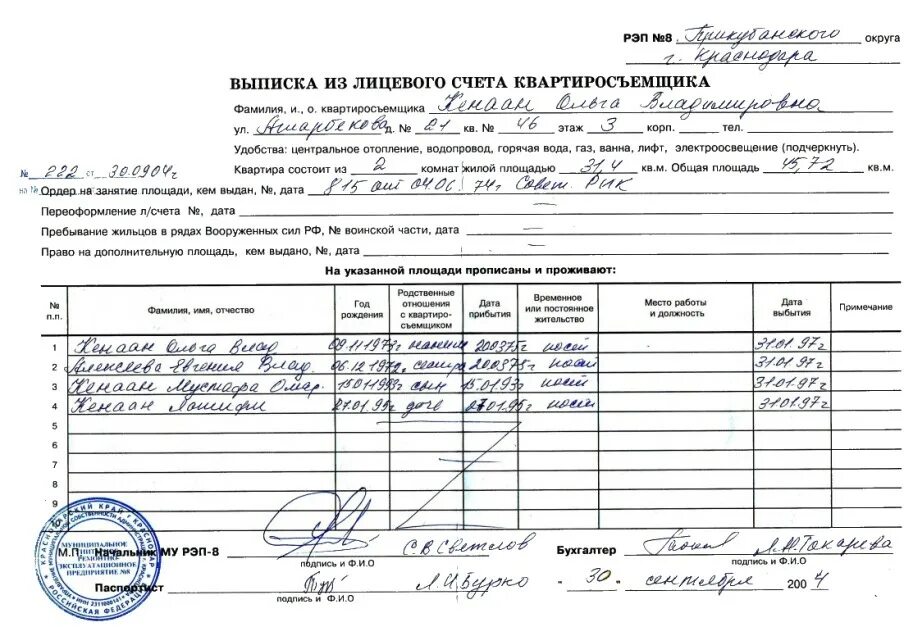 РЭП №8 Прикубанского округа
г. Краснодара
ВЫПИСКА ИЗ ЛИЦЕВОГО СЧЕТА КВАРТИРОСЪЕМЩИКА
Фамилия, и., о. квартиросъемщика Кенаан Ольга Владимировна
ул. Атарбекова д. № 21 кв. № 46 этаж 3 корп. тел.
Удобства: центральное отопление, водопровод, горячая вода, газ, ванна, лифт, электроосвещение (подчеркнуть).
№ 222 от 30.09.04г
Квартира состоит из 2 комнат жилой площадью 31,4 кв.м. Общая площадь 45,72 кв.м.
на №
Ордер на занятие площади, кем выдан, №, дата 815 от 04.06.74г Совет. РИК
Переоформление л/счета №, дата —
Пребывание жильцов в рядах Вооруженных сил РФ, № воинской части, дата —
Право на дополнительную площадь, кем выдано, №, дата —
На указанной площади прописаны и проживают:
№ п.п. Фамилия, имя, отчество Год рождения Родственные отношения с квартиро-съемщиком Дата прибытия Временное или постоянное жительство Место работы и должность Дата выбытия Примечание
1 Кенаан Ольга Влад 09.11 наним 200375 пост 31.01.97г
2 Алексеева Евгения Влад. 06.12 сестра 200375 пост 31.01.97г
3 Кенаан Мустафа Омар. 15.01 сын 15.01.93г пост 31.01.97г
4 Кенаан 21.01.95г дочь 01.95г пост 31.01.97г
5
6
7
8
9
М.П. Начальник МУ РЭП-8 С В Светлов Бухгалтер Л.М.Токарева
подпись и Ф.И.О подпись и Ф.И.О
Паспортист Л.И.Бурко - 30 - сентября 2004
подпись и Ф.И.О
КРАСНОДАРСКИЙ КРАЙ Г. КРАСНОДАР
МУНИЦИПАЛЬНОЕ
РЕМОНТНО-
ЭКСПЛУАТАЦИОННОЕ
ПРЕДПРИЯТИЕ №8
РОССИЙСКАЯ ФЕДЕРАЦИЯ